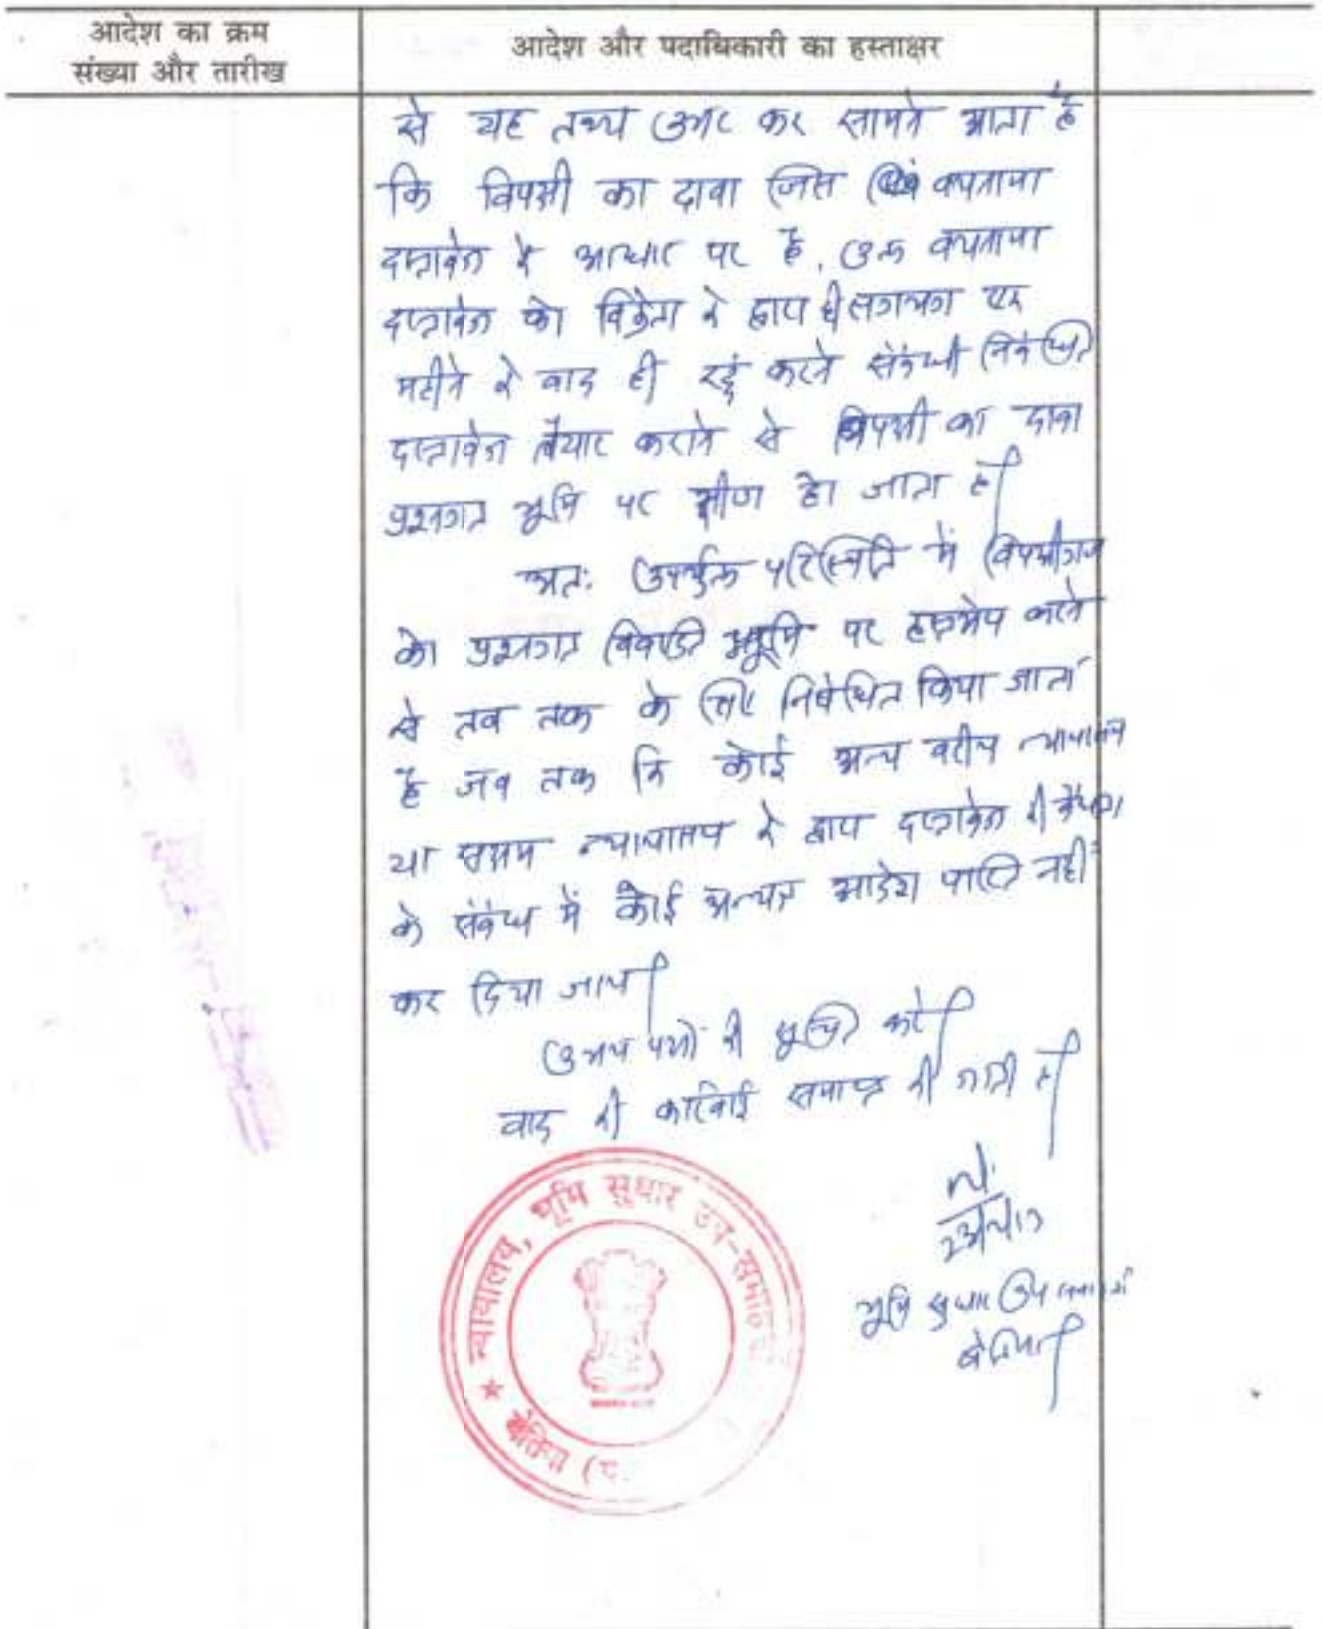 आदेश का क्रम
संख्या और तारीख
आदेश और पदाधिकारी का हस्ताक्षर
से यह तथ्य उभर कर सामने आता है
कि विपक्षी का दावा जिस वयनामा
दस्तावेज के आधार पर है, उक्त वयनामा
दस्तावेज को विक्रेता के द्वारा ही लगभग एक
महीने के बाद ही रद्द करने संबंधी निबंधित
दस्तावेज तैयार कराने से विपक्षी का दावा
प्रश्नगत भूमि पर क्षीण हो जाता है।
अतः उपर्युक्त परिस्थिति में विपक्षीगण
को प्रश्नगत विवादित भूमि पर हस्तक्षेप करने
से तब तक के लिए निषेधित किया जाता
है जब तक कि कोई अन्य वरीय न्यायालय
या सक्षम न्यायालय के द्वारा दस्तावेज की वैधता
के संबंध में कोई अन्यत्र आदेश पारित नहीं
कर दिया जाय।
उभय पक्षों को सूचित करें।
वाद की कार्रवाई समाप्त की जाती है।
भूमि सुधार उप समाहर्ता
बेतिया।
न्यायालय, भूमि सुधार उप-समाह
★ बेतिया (प.